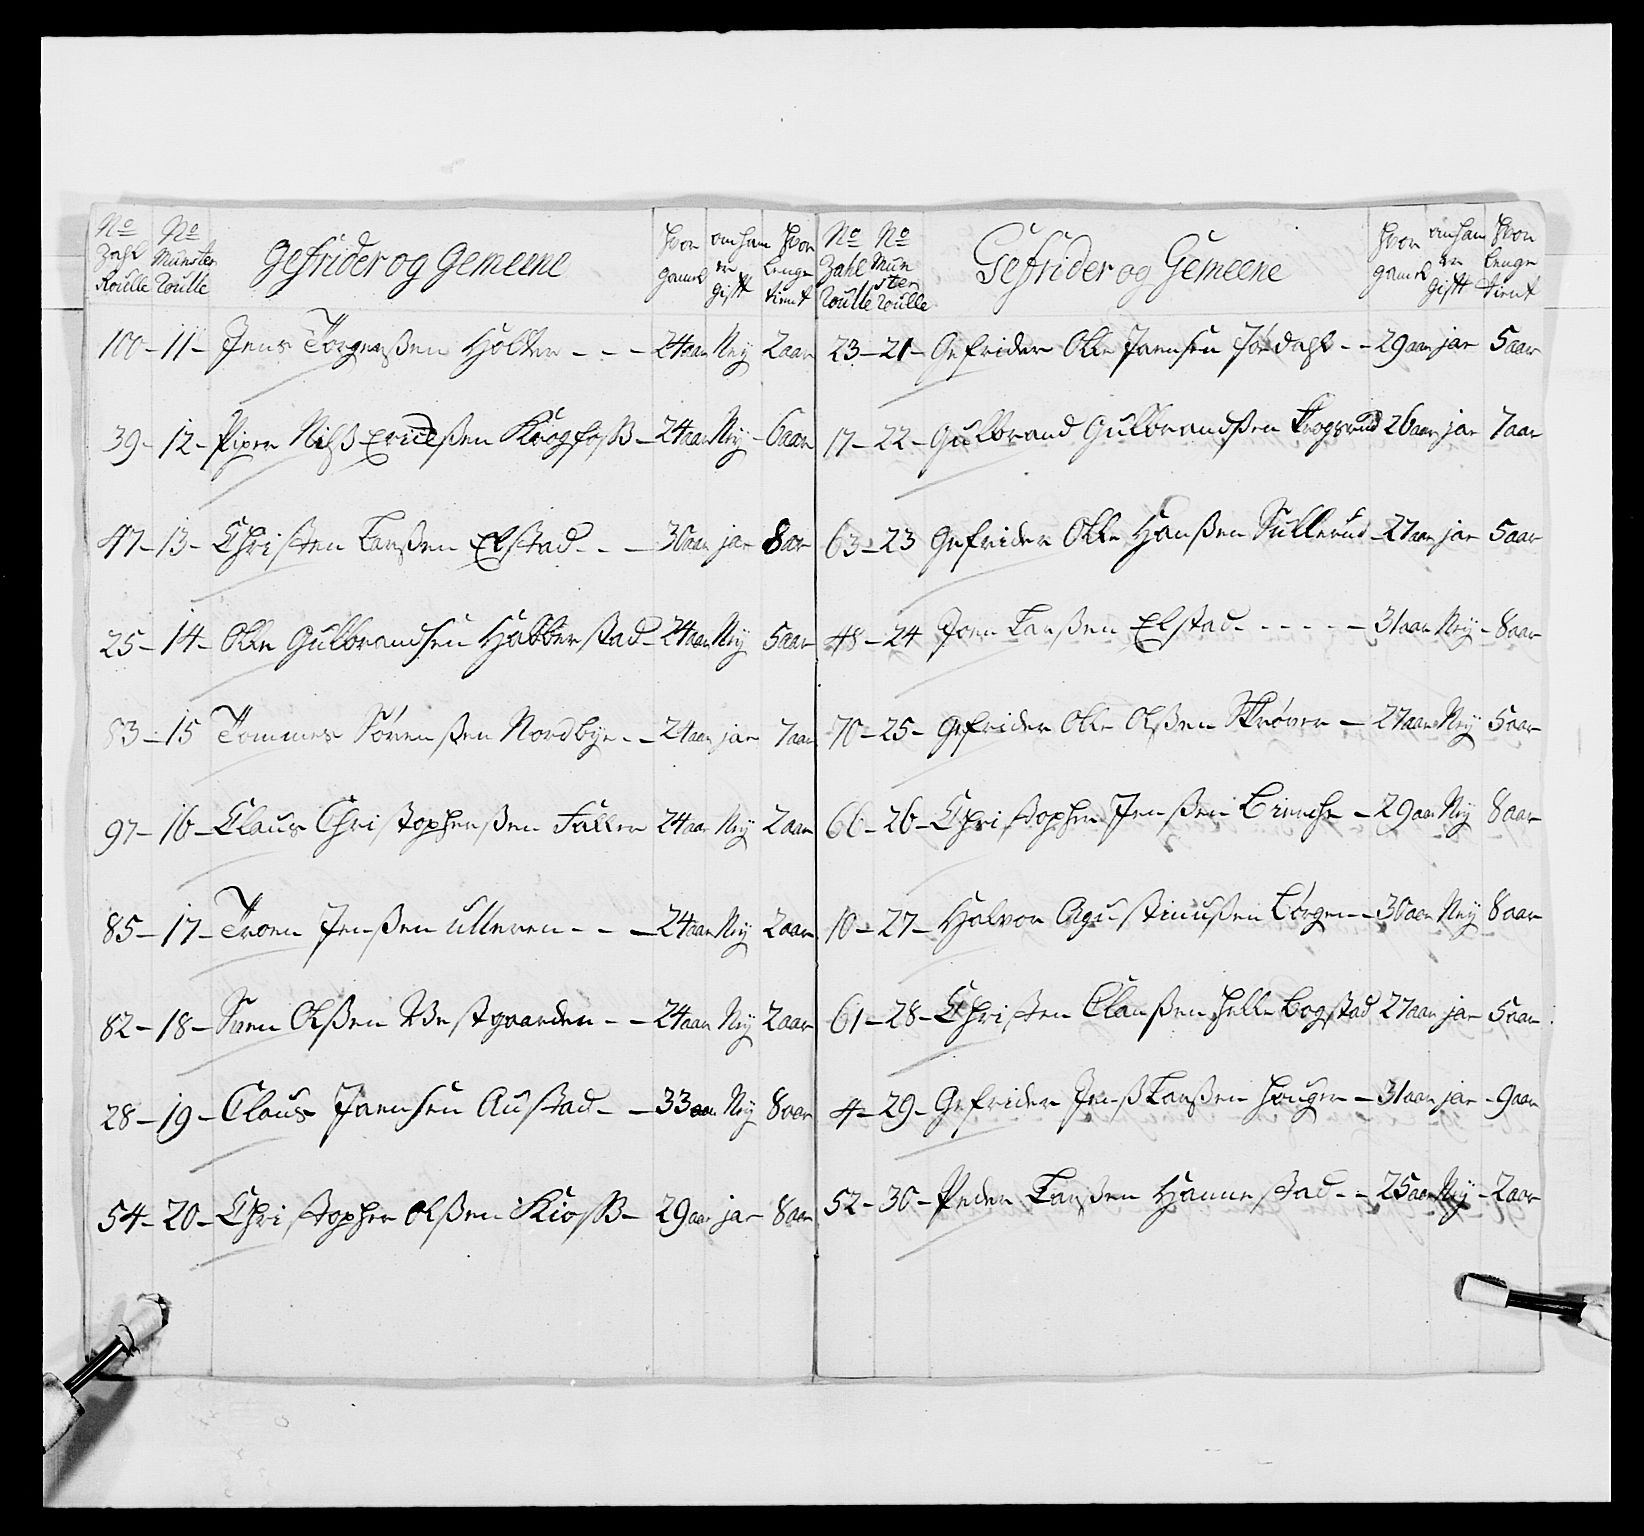 No Zahl Roulle No Munster Roulle Gefrider og Gemeene hvor gamel om han er gift hvor lenge tient
100 - 11 - Jens Torgerßen Holter - - - 24 aar Nej 2 aar
39 - 12 - Piper Nilß Ericßen Krogfoß - 24 aar Nej - 6 aar
47 - 13 - Christen Larßen Elstad - - - 30 aar jar 8 aar
25 - 14 - Olle Gulbrandsen Habberstad 24 aar Nej 5 aar
83 - 15 Tommes Sörenßen Nordbye - - 24 aar jar 7 aar
97 - 16 - Claus Christopherßen Faller 24 aar Nej 2 aar
85 - 17 - Troen Jenßen Ulleren - - - 24 aar Nej 2 aar
82 - 18 - Sven Olßen Westgaarden - - 24 aar Nej 2 aar
28 - 19 - Claus Joensen Austad - - 33 aar Nej 8 aar
54 - 20 - Christopher Olßen Kioß - 29 aar jar 8 aar
No Zahl Roulle No Munster Roulle Gefrider og Gemeene hvor gamel om han er gift hvor lenge tient
23 - 21 - Gefrider Olle Joensen Jördahl - - 29 aar jar 5 aar
17 - 22 - Gulbrand Gulbrandßen Krogsrud 26 aar jar 7 aar
63 - 23 Gefrider Olle Hanßen Sullerud - 27 aar jar 5 aar
48 - 24 Joen Larßen Elstad - - - - - 31 aar Nej - 8 aar
70 - 25 - Gefrider Olle Olßen Skröver - 27 aar Nej 5 aar
66 - 26 - Christopher Jenßen - 29 aar Nej 8 aar
10 - 27 - Halvor Agustinußen Börgen - - 30 aar Nej 8 aar
61 - 28 - Christen Claußen Helle Bogstad 27 aar jar - 5 aar
4 - 29 - Gefrider Jenß Larßen Houger - 31 aar jar - 9 aar
52 - 30 - Peder Larßen Hannestad - - 25 aar Nej - 2 aar